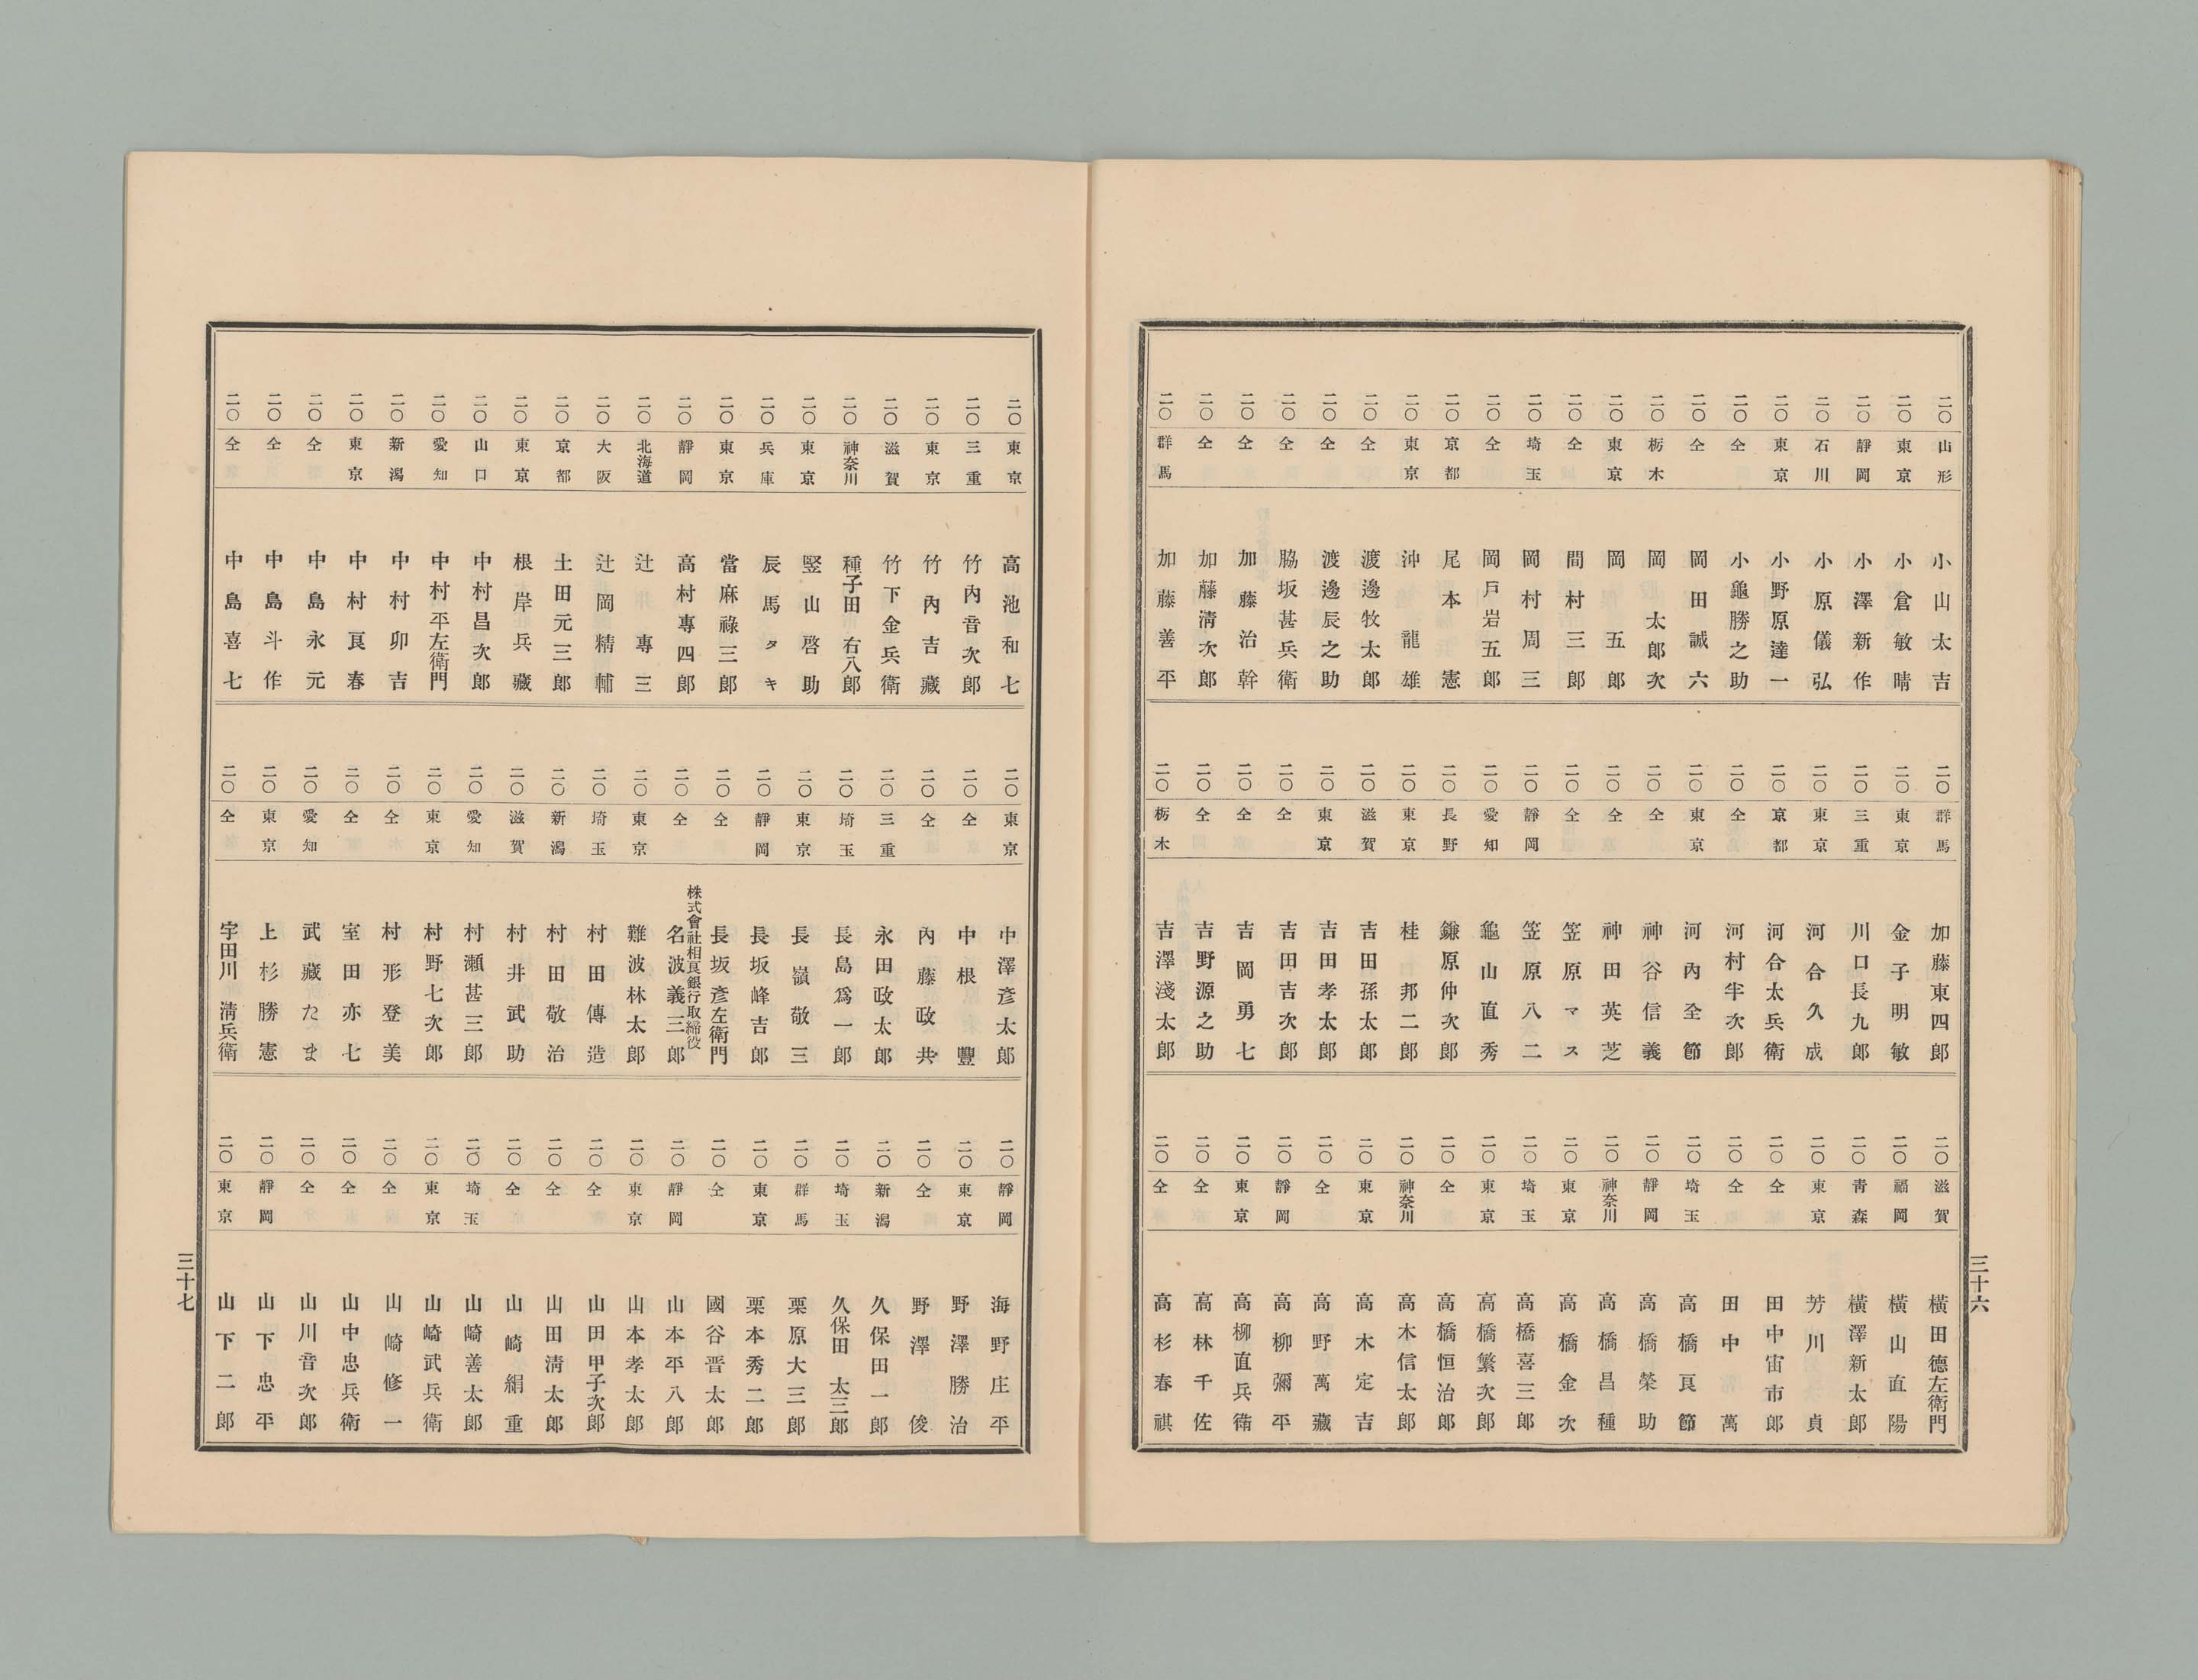 三十六
二〇 山形 小山太吉
二〇 東京 小倉敏晴
二〇 靜岡 小澤新作
二〇 石川 小原儀弘
二〇 東京 小野原達一
二〇 仝 小龜勝之助
二〇 仝 岡田誠六
二〇 栃木 岡太郎次
二〇 東京 岡五郎
二〇 仝 間村三郎
二〇 埼玉 岡村周三
二〇 仝 岡戸岩五郎
二〇 京都 尾本憲
二〇 東京 沖龍雄
二〇 仝 渡邊牧太郎
二〇 仝 渡邊辰之助
二〇 仝 脇坂甚兵衛
二〇 仝 加藤治幹
二〇 仝 加藤淸次郎
二〇 群馬 加藤善平
二〇 群馬 加藤東四郎
二〇 東京 金子明敏
二〇 三重 川口長九郎
二〇 東京 河合久成
二〇 京都 河合太兵衛
二〇 仝 河村半次郎
二〇 東京 河內全節
二〇 仝 神谷信義
二〇 仝 神田英芝
二〇 仝 笠原マス
二〇 靜岡 笠原八二
二〇 愛知 龜山直秀
二〇 長野 鎌原仲次郎
二〇 東京 桂邦二郎
二〇 滋賀 吉田孫太郎
二〇 東京 吉田孝太郎
二〇 仝 吉田吉次郎
二〇 仝 吉岡勇七
二〇 仝 吉野源之助
二〇 栃木 吉澤淺太郎
二〇 滋賀 橫田德左衛門
二〇 福岡 橫山直陽
二〇 靑森 橫澤新太郎
二〇 東京 芳川貞
二〇 仝 田中宙市郎
二〇 仝 田中萬
二〇 埼玉 高橋良節
二〇 靜岡 高橋榮助
二〇 神奈川 高橋昌種
二〇 東京 高橋金次
二〇 埼玉 高橋喜三郎
二〇 東京 高橋繁次郎
二〇 仝 高橋恒治郎
二〇 神奈川 高木信太郎
二〇 東京 高木定吉
二〇 仝 高野萬藏
二〇 靜岡 高柳彌平
二〇 東京 高柳直兵衛
二〇 仝 高林千佐
二〇 仝 高杉春祺
二〇 東京 高池和七
二〇 三重 竹內音次郎
二〇 東京 竹內吉藏
二〇 滋賀 竹下金兵衛
二〇 神奈川 種子田右八郎
二〇 東京 竪山啓助
二〇 兵庫 辰馬タキ
二〇 東京 當麻祿三郎
二〇 靜岡 高村專四郎
二〇 北海道 辻專三
二〇 大阪 辻岡精輔
二〇 京都 土田元三郎
二〇 東京 根岸兵藏
二〇 山口 中村昌次郎
二〇 愛知 中村平左衛門
二〇 新潟 中村卯吉
二〇 東京 中村良春
二〇 仝 中島永元
二〇 仝 中島斗作
二〇 仝 中島喜七
二〇 東京 中澤彥太郎
二〇 仝 中根豐
二〇 仝 內藤政共
二〇 三重 永田政太郎
二〇 埼玉 長島爲一郎
二〇 東京 長嶺敬三
二〇 靜岡 長坂峰吉郎
二〇 仝 長坂彥左衛門
二〇 仝 株式會社相良銀行取締役 名波義三郎
二〇 東京 難波林太郎
二〇 埼玉 村田傳造
二〇 新潟 村田敬治
二〇 滋賀 村井武助
二〇 愛知 村瀨甚三郎
二〇 東京 村野七次郎
二〇 仝 村形登美
二〇 仝 室田亦七
二〇 愛知 武藏たま
二〇 東京 上杉勝憲
二〇 仝 宇田川淸兵衛
二〇 靜岡 海野庄平
二〇 東京 野澤勝治
二〇 仝 野澤俊
二〇 新潟 久保田一郎
二〇 埼玉 久保田太三郎
二〇 群馬 栗原大三郎
二〇 東京 栗本秀二郎
二〇 仝 國谷晋太郎
二〇 靜岡 山本平八郎
二〇 東京 山本孝太郎
二〇 仝 山田甲子次郎
二〇 仝 山田淸太郎
二〇 仝 山崎絹重
二〇 埼玉 山崎善太郎
二〇 東京 山崎武兵衛
二〇 仝 山崎修一
二〇 仝 山中忠兵衛
二〇 仝 山川音次郎
二〇 靜岡 山下忠平
二〇 東京 山下二郎
三十七